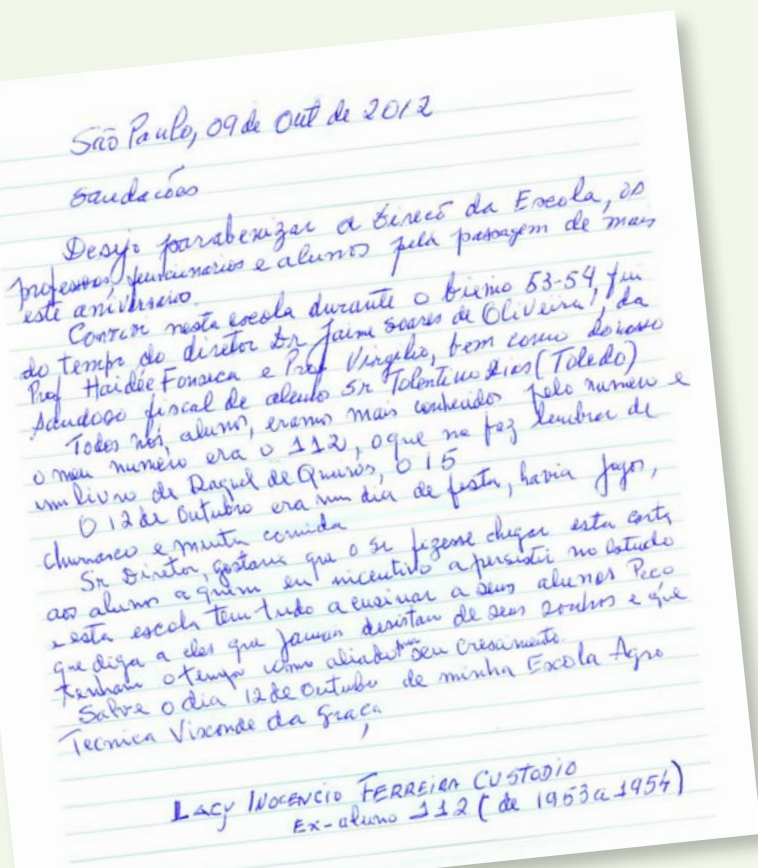 São Paulo, 09 de Out de 2012
Saudacões
Desejo parabenizar a Direcõ da Escola, os
professores, funcionarios e alunos pela passagem de mais
este aniversario.
Convivi nesta escola durante o bienio 53-54, fui
do tempo do diretor Dr Jaime Soares de Oliveira, da
Prof Haidée Fonseca e Prof Virgilio, bem como do nosso
saudoso fiscal de alunos Sr Tolentino Dias (Toledo)
Todos nós, alunos, eramos mais conhecidos pelo numero e
o meu numero era o 112, o que me faz lembrar de
um livro de Raquel de Queiros, O 15
O 12 de Outubro era um dia de festa, havia jogos,
churrasco e muita comida
Sr Diretor, gostaria que o Sr fizesse chegar esta carta
aos alunos a quem eu incentivo a persistir no estudo
e esta escola tem tudo a ensinar a seus alunos Peco
que diga a eles que jamais desistam de seus sonhos e que
tenham o tempo como aliado seu crescimento.
Salve o dia 12 de Outubro de minha Escola Agro
Tecnica Visconde da Graça
Lacy Inocencio Ferreira Custodio
Ex-aluno 112 (de 1953 a 1954)